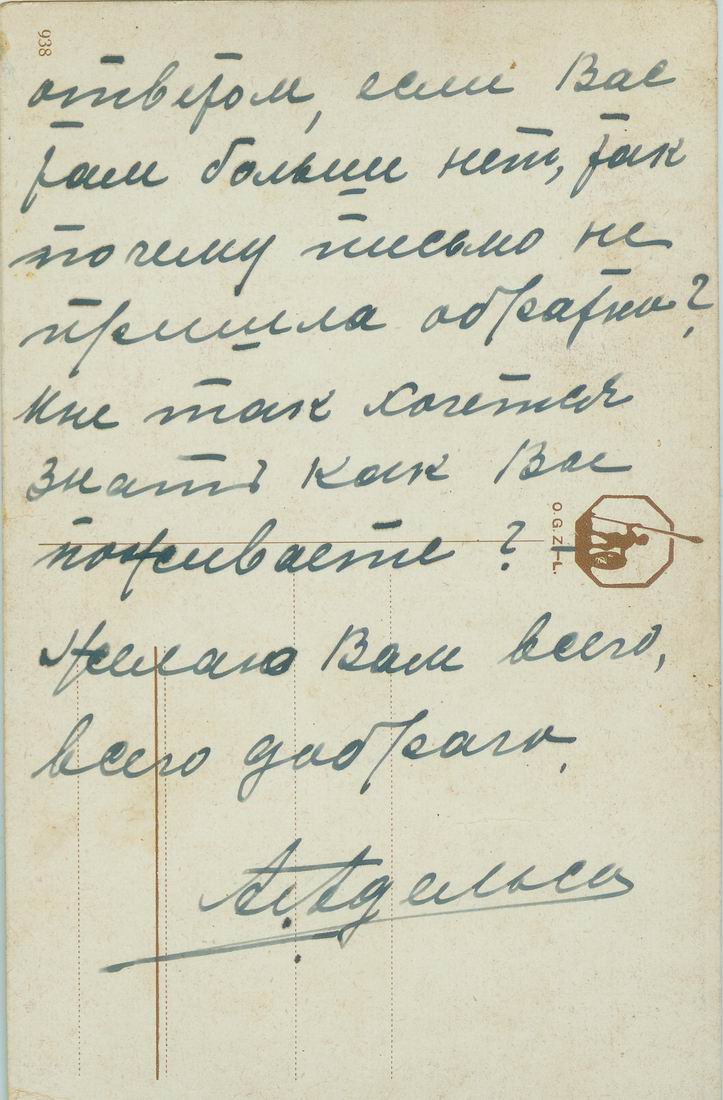 938
ответом, если Вас
там больши нет, так
почему письмо не
пришла обратно?
Мне так хочется
знать как Вы
поживаете?
O.G.Z.-L.
Желаю Вам всего,
всего добраго.